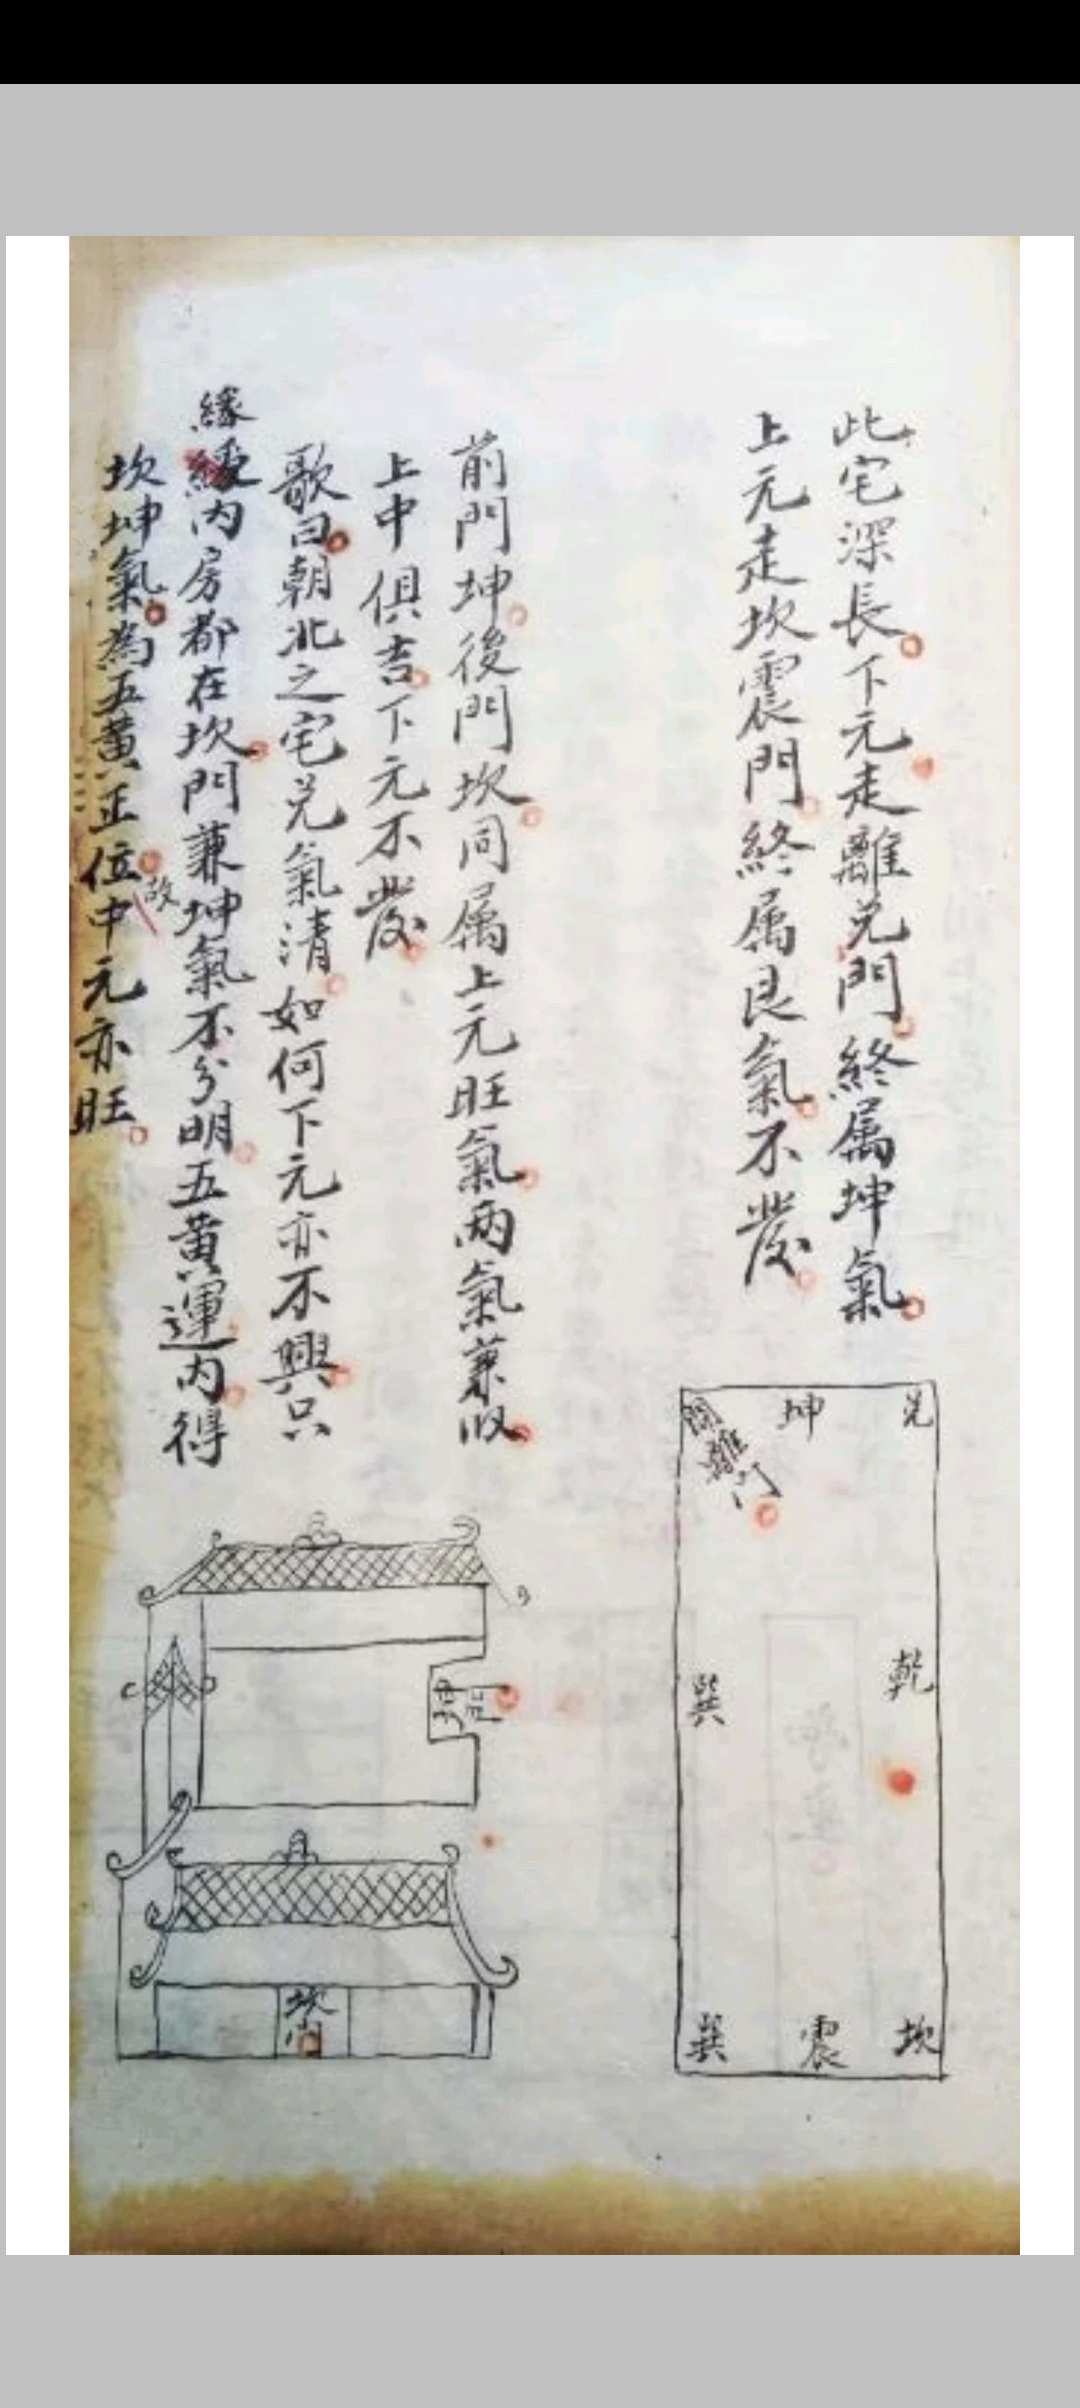 此宅深長下元走離兌門終属坤氣
上元走坎震門終属艮氣不發
前門坤後門坎同属上元旺氣兩氣兼收
上中俱吉下元不發
歌曰朝北之宅兌氣清如何下元亦不興只
緣
緩内房都在坎門兼坤氣不分明五黄運内得
坎坤氣為五黄正位中元亦旺
故
兌
坤
開離门
乾
巽
坎
震
巽
坤门
坎门